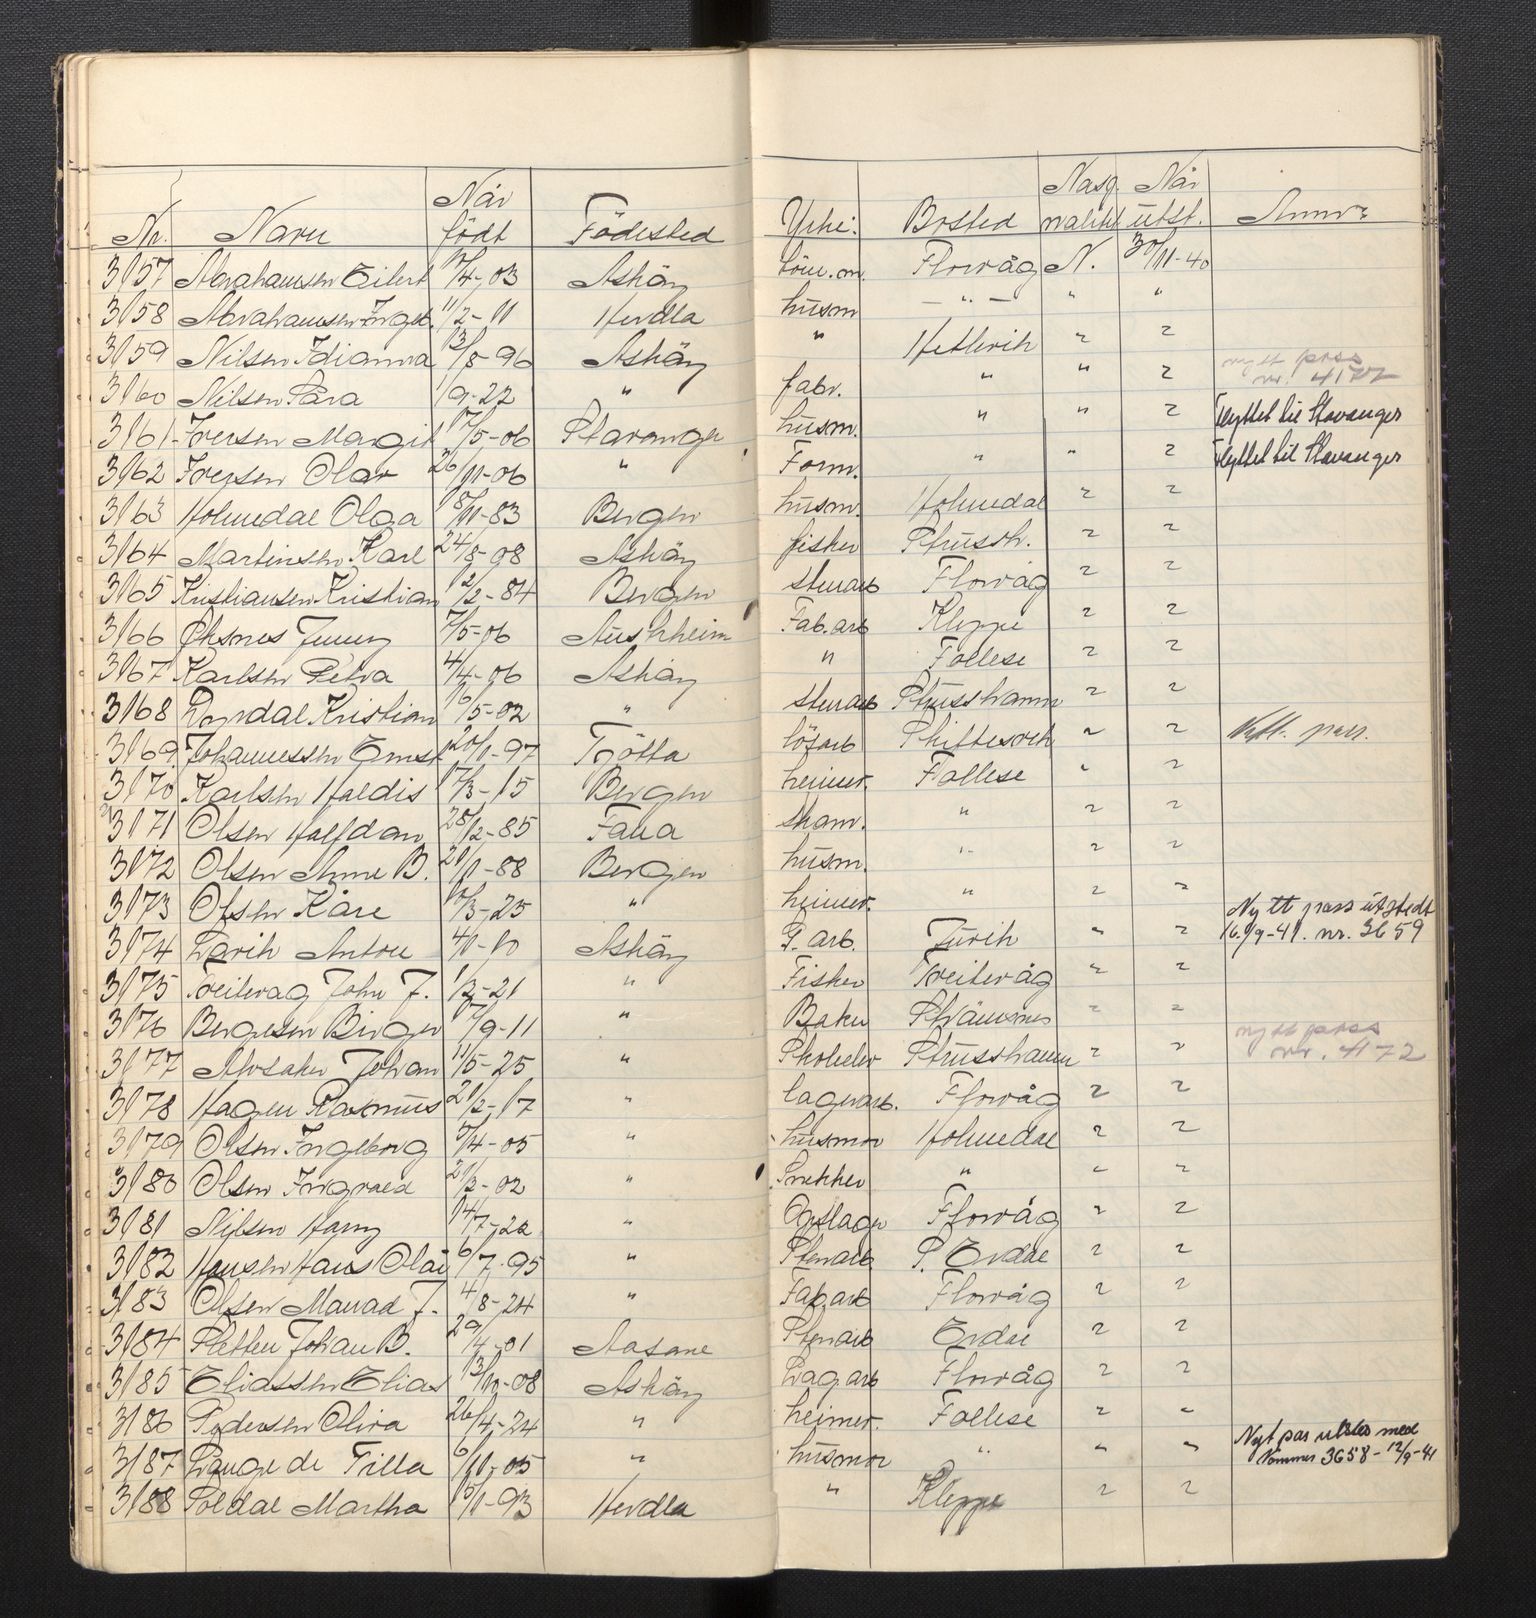 Nr. Navn Når født Fødested Yrke. Bosted Nasjonalitet Når utst. Anm.
3157 Abrahamsen Eilert /4-03 Askøy Florvåg N. 30/11-40
3158 Abrahamsen Ingeb. 11/2-11 Herdla husm — " — " "
3159 Nilsen Idianna 13/8-96 Askøy " Hetlevik " "
3160 Nilsen Sara 1/9-22 " fabr. " " " nytt pass nr. 4177
3161 Iversen Margit 17/5-06 Stavanger husm. " " " Flyttet til Stavanger
3162 Iversen Olav 26/11-06 " Form. " " " Flyttet til Stavanger
3163 Holmedal Olga 8/11-83 Bergen husm. Holmedal " "
3164 Martinsen Karl 24/8-08 Askøy fisker Strussh. " "
3165 Kristiansen Kristian 12/2-84 Bergen sturarb Florvåg " "
3166 Øksnes Jenny 7/5-06 Austrheim Fab.arb Kleppe " "
3167 Karlsen Petra 4/4-06 Askøy " Follese " "
3168 Kristian 16/5-02 " sturarb Strusshamn " "
3169 Johannessen Ernst 20/1-97 Tjøtta løsarb " " Nytt. pass.
3170 Karlsen Haldis 17/3-15 Bergen heimev. Follese " "
3171 Olsen Halfdan 28/2-85 Fana " " "
3172 Olsen Anne B. 21/1-88 Bergen husm. " " "
3173 Olsen Kåre 10/3-25 " heimev. " " " Nytt pass utstedt
3174 Davik Anton 4/1-10 Askøy G. arb. Juvik " " 16/9-41. nr. 3659
3175 Treitevag John J. 1/3-21 " Fisker Treitevåg " "
3176 Bergesen Birger 7/9-11 " Baker " "
3177 Alvsaker Johan 11/5-25 " Skoleelev Strusshamn " " nytt pass nr. 4172
3178 Hagen Rasmus 21/2-17 " lagerarb. Florvåg " "
3179 Olsen Ingeborg 5/4-05 " husmor Holmedal " "
3180 Olsen Ingvald 21/3-02 " Snekker " " "
3181 Nilsen Harry 14/7-22 " Florvåg " "
3182 Hansen Hans Olai 6/7-95 " Stenarb S. Erdal " "
3183 Olsen Manrad J. 4/8-24 " Fab.arb Florvåg " "
3184 Sletten Johan B. 29/4-01 Aasane Stenarb Erdal " "
3185 Eliassen Elias 13/10-08 Askøy Lagarb Florvåg " "
3186 Pedersen Olira 26/4-24 " heimev. Follese " "
3187 Lange de Tilla 6/10-05 " husmor " " " Nyt pas utstes med Nommer 3658-12/9-41
3188 Soldal Martha 15/1-93 Herdla " Kleppe " "